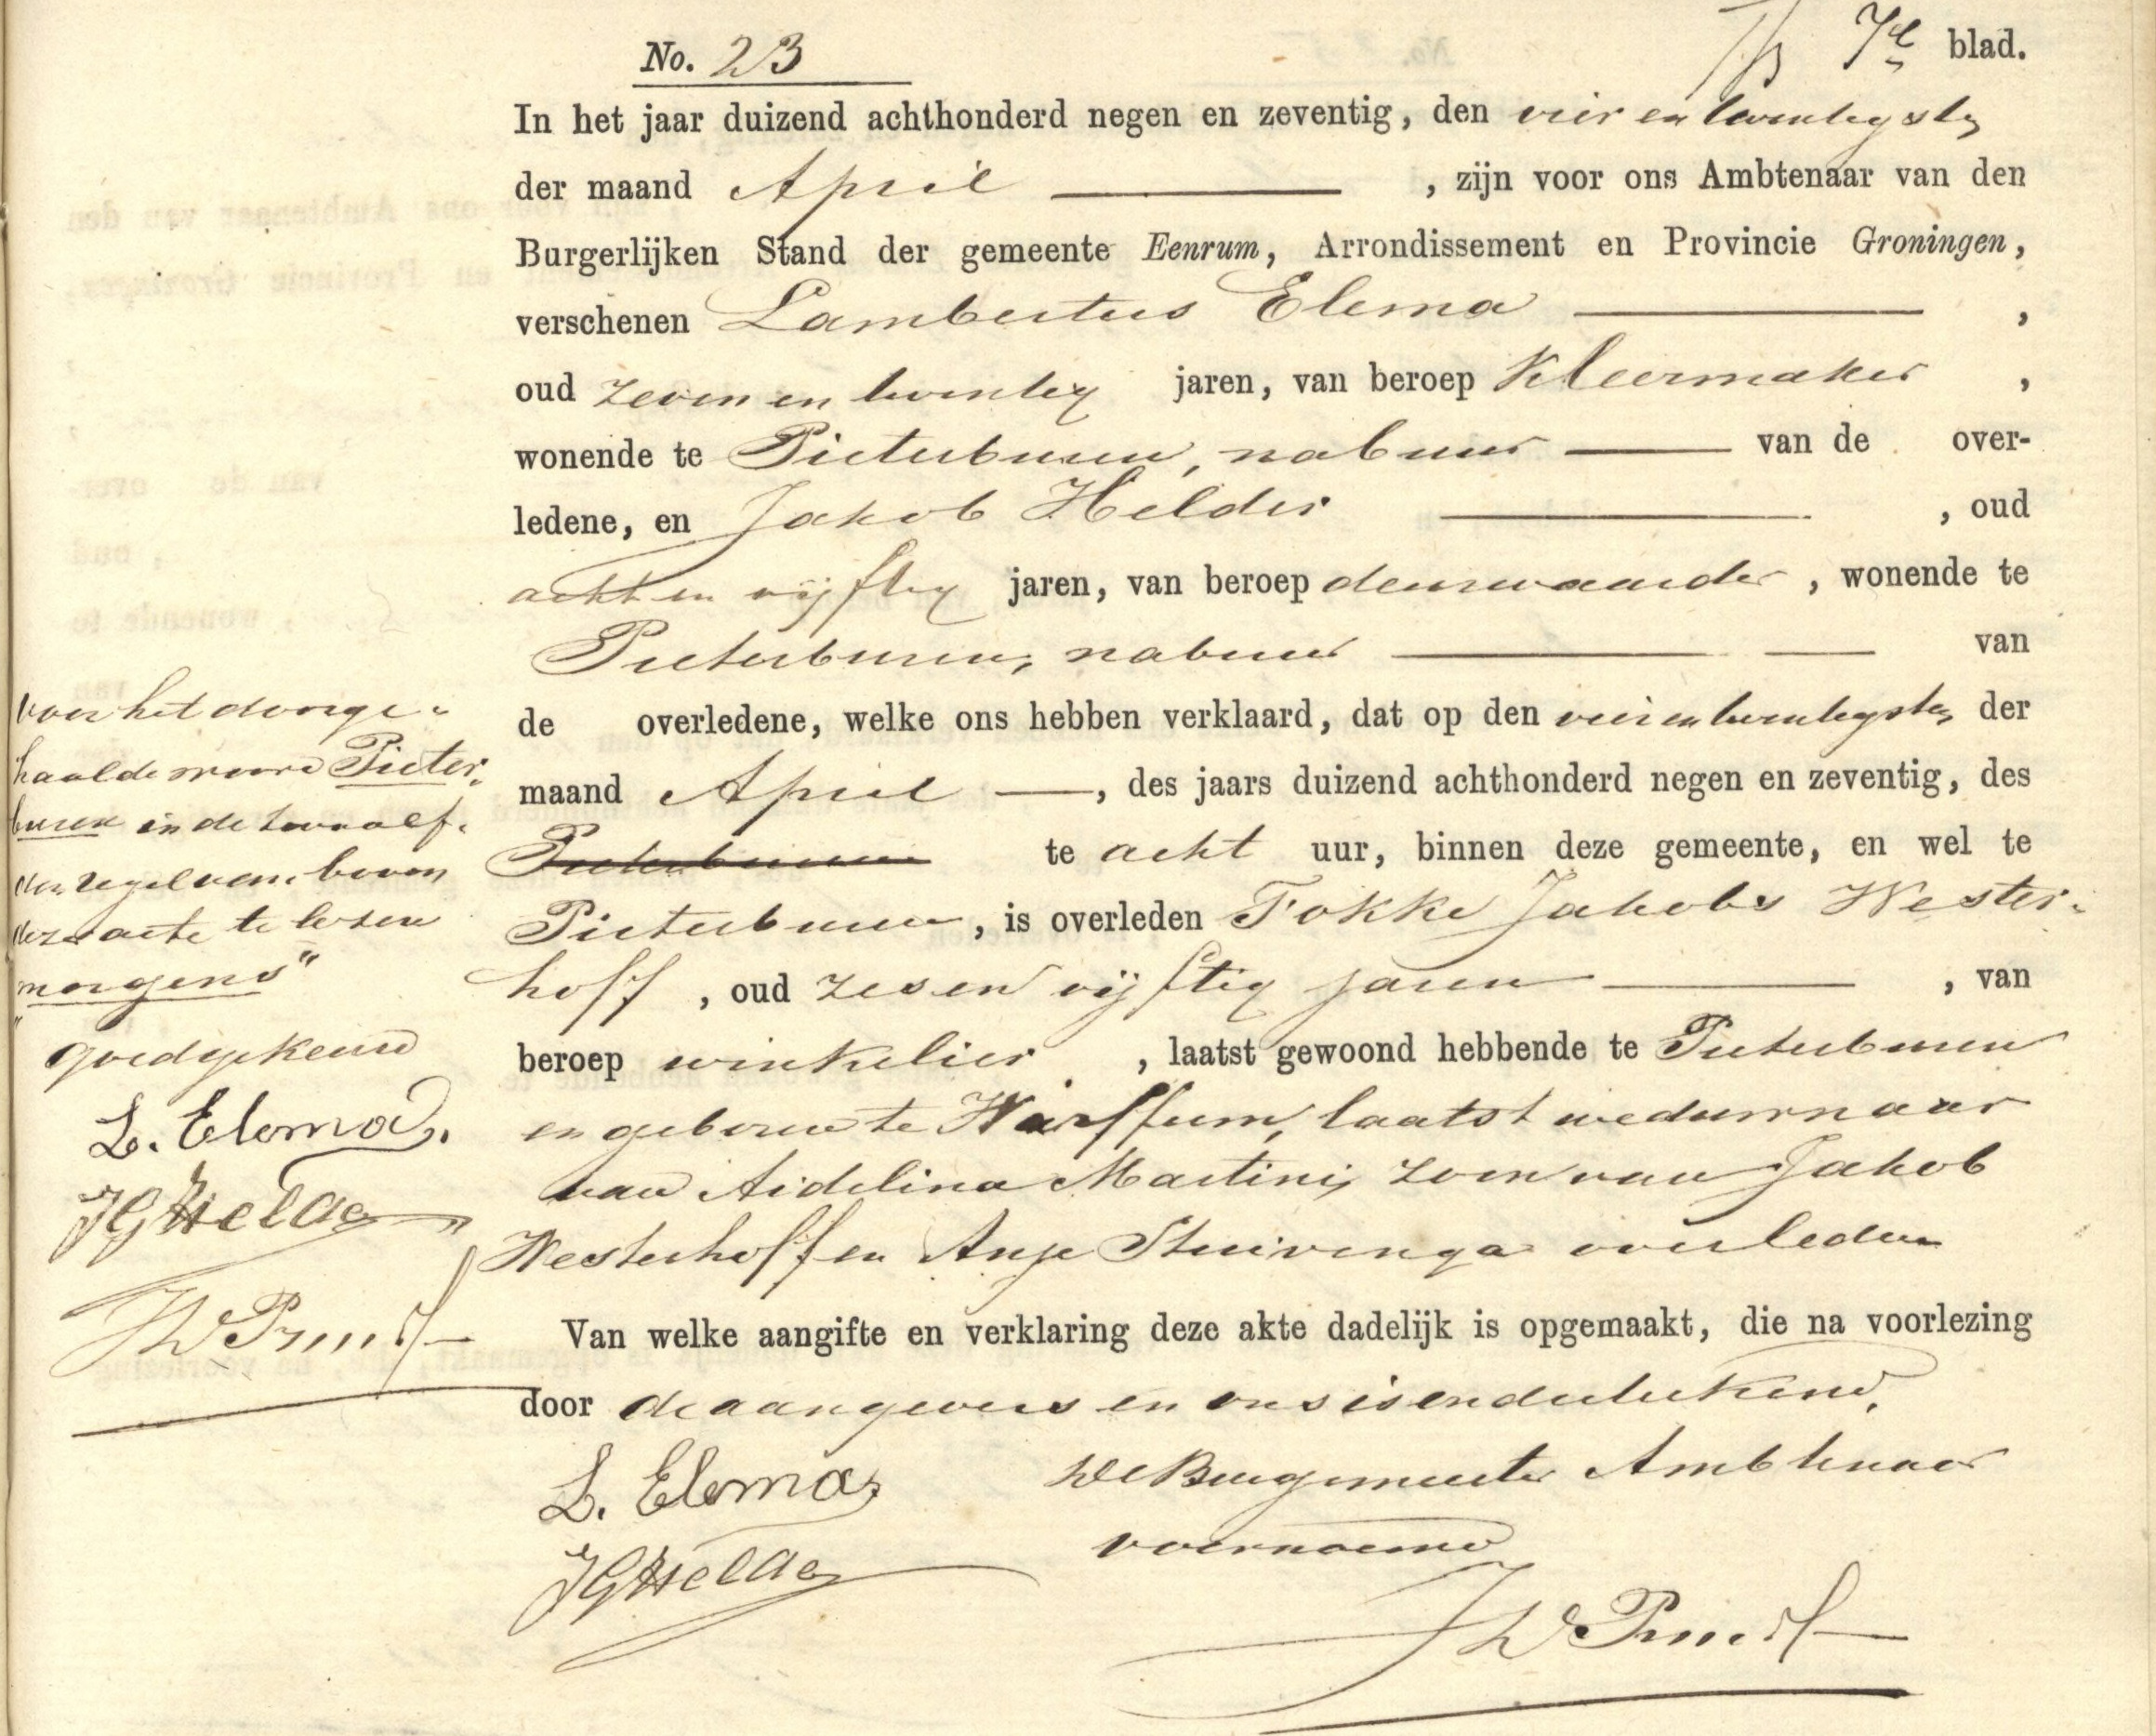 No. 23
7e blad.
In het jaar duizend achthonderd negen en zeventig, den vier en twintigsten
der maand April , zijn voor ons Ambtenaar van den
Burgerlijken Stand der gemeente Eenrum, Arrondissement en Provincie Groningen,
verschenen Lambertus Elema ,
oud zeven en twintig jaren, van beroep Kleermaker ,
wonende te Pieterburen, nabuur van de over-
ledene, en Jakob Helder , oud
acht en vijftig jaren, van beroep deurwaarder , wonende te
Pieterburen, nabuur van
de overledene, welke ons hebben verklaard, dat op den vier en twintigsten der
maand April , des jaars duizend achthonderd negen en zeventig, des
Pieterburen te acht uur, binnen deze gemeente, en wel te
Pieterburen , is overleden Fokke Jakobs Wester-
hoff , oud zes en vijftig jaren , van
beroep winkelier , laatst gewoond hebbende te Pieterburen
en geboren te Warffum, laatst weduwnaar
van Aidelina Martini, zoon van Jakob
Westerhoff en Anje Stuivenga overleden
Van welke aangifte en verklaring deze akte dadelijk is opgemaakt, die na voorlezing
door de aangevers en ons is onderteekend.
De Burgemeester Ambtenaar
voornoemd
L. Elema
JGHelder
voor het doorge-
haalde woord Pieter-
buren in de twaalf-
den regel van boven
dezer acte te lezen
"morgens"
goedgekeurd
L. Elema.
JGHelder